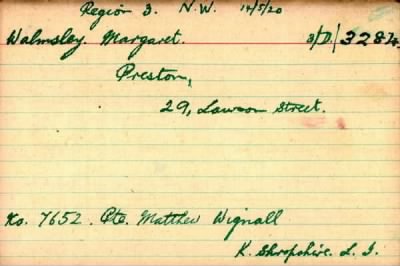 Region 3. N.W. 14/5/20
Walmsley. Margaret. 3/D/3284.
Preston,
29, Lawson Street.
No. 7652. Pte. Matthew Wignall
K. Shropshire. L. I.